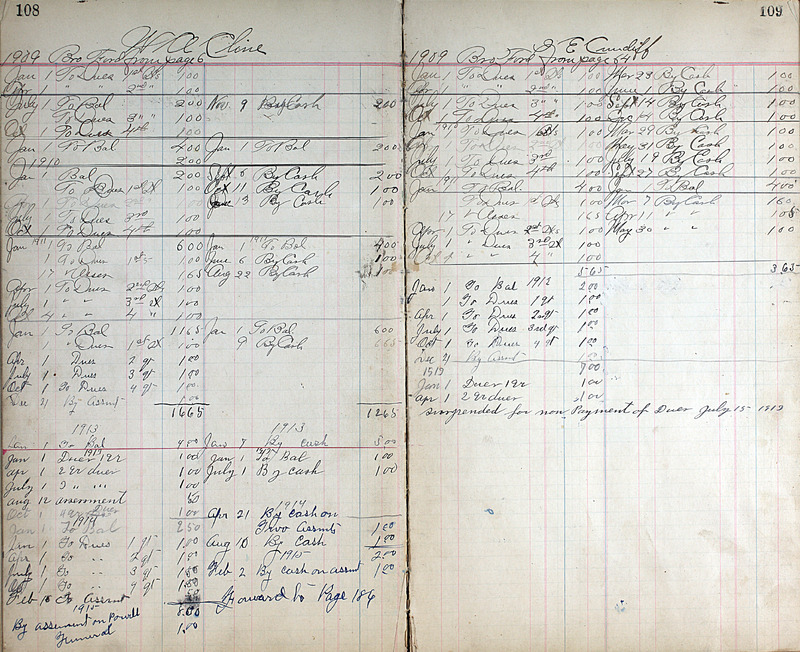 108
W A Cline
1909 Bro Ford from page 6
Jan 1 To Dues 1st 1 00
Apr 1 " " 2nd " 1 00
July 1 To Bal 2 00 Nov. 9 By Cash 2 00
To Dues 3rd " 1 00
Oct 1 To Dues 4th 1 00
Jan 1 To Bal 4 00 Jan 1 To Bal 2 00
1910 2 00
Jan 1 Bal 2 00 Sept 6 By Cash 2 00
To Dues 1st 1 00 Oct 11 By Cash 1 00
13 By Cash 1 00
July 1 To Dues 3rd 1 00
Oct 1 To Dues 4th 1 00
Jan 1911 To Bal 6 00 Jan 1 1911 To Bal 4 00
1 To Dues 1st 1 00 June 6 By Cash 1 00
17 " 1 65 Aug 22 By Cash 1 00
Apr 1 To Dues 2nd 1 00
July 1 " " 3rd 1 00
4 " 1 00
Jan 1 To Bal 11 65 Jan 1 To Bal 6 00
" Dues 1st 1 00 9 By Cash 6 65
Apr 1 Dues 2 qr 1.00
July 1 Dues 3 qr 1.00
Oct 1 To Dues 4 qr 1.00
Dec 21 By Assmt 1.00
16 65 12 65
1913 1913
Jan 1 To Bal 4 00 Jan 7 By cash 3 00
Jan 1 1913 Dues 1 qr 1 00 Jan 1 To Bal 1 00
apr 1 2 qr dues 1 00 July 1 By cash 1 00
July 1 3 " " 1 00
aug 12 assessment 50
Oct 1 4 qr Dues 1 00 1914
1914 Apr 21 By cash on
Jan 1 To Bal 2 50 Two Assmts 1.00
Jan 1 To Dues 1 qr 1.00 Aug 10 By Cash 1.00
Apr 1 To " 2 qr 1.00 1915 2.00
July 1 To " 3 qr 1.00 Feb 2 By cash on assmt 1.00
Oct 1 To " 4 qr 1.00
Feb 10 To Assmt 50 Forward to Page 186
1915 8.00
By assessment on Powell
Funeral 1.00
109
G E Cundiff
1909 Bro Ford from page 64
Jan 1 To Dues 1st 1 00 Mar 23 By Cash 1 00
" 2nd " 1 00 June 1 By Cash 1 00
July 1 To Dues 3rd " 1 00 Sept 14 By Cash 1 00
Oct 1 To Dues 4th 1 00 Jan 4 By Cash 1 00
Jan 1910 To Dues 1 00 Mar 29 By Cash 1 00
1 00 May 31 By Cash 1 00
July 1 To Dues 3rd 1 00 July 19 By Cash 1 00
Oct 1 To Dues 4th 1 00 Sept 27 By Cash 1 00
Jan 1 To Bal. 4 00 Jan 1 To Bal 4 00
To Dues 1st 1 00 Mar 7 By Cash 1 60
17 " 1 65 Apr 11 " " 1 05
Apr 1 To Dues 2nd 1 00 May 30 " " 1 00
July 1 " Dues 3rd 1 00
" 4 " 1 00
5 65 3 65
Jan 1 To Bal 1912 2 00
1 To Dues 1 qr 1 00
Apr 1 To Dues 2 qr 1 00
July 1 To Dues 3rd qr 1 00
Oct 1 To Dues 4 qr 1 00
Dec 21 By Assmt 1 00
1913 7 00
Jan 1 Dues 1 qr 1 00
apr 1 2 qr dues 1 00
suspended for non Payment of Dues July 15 1913